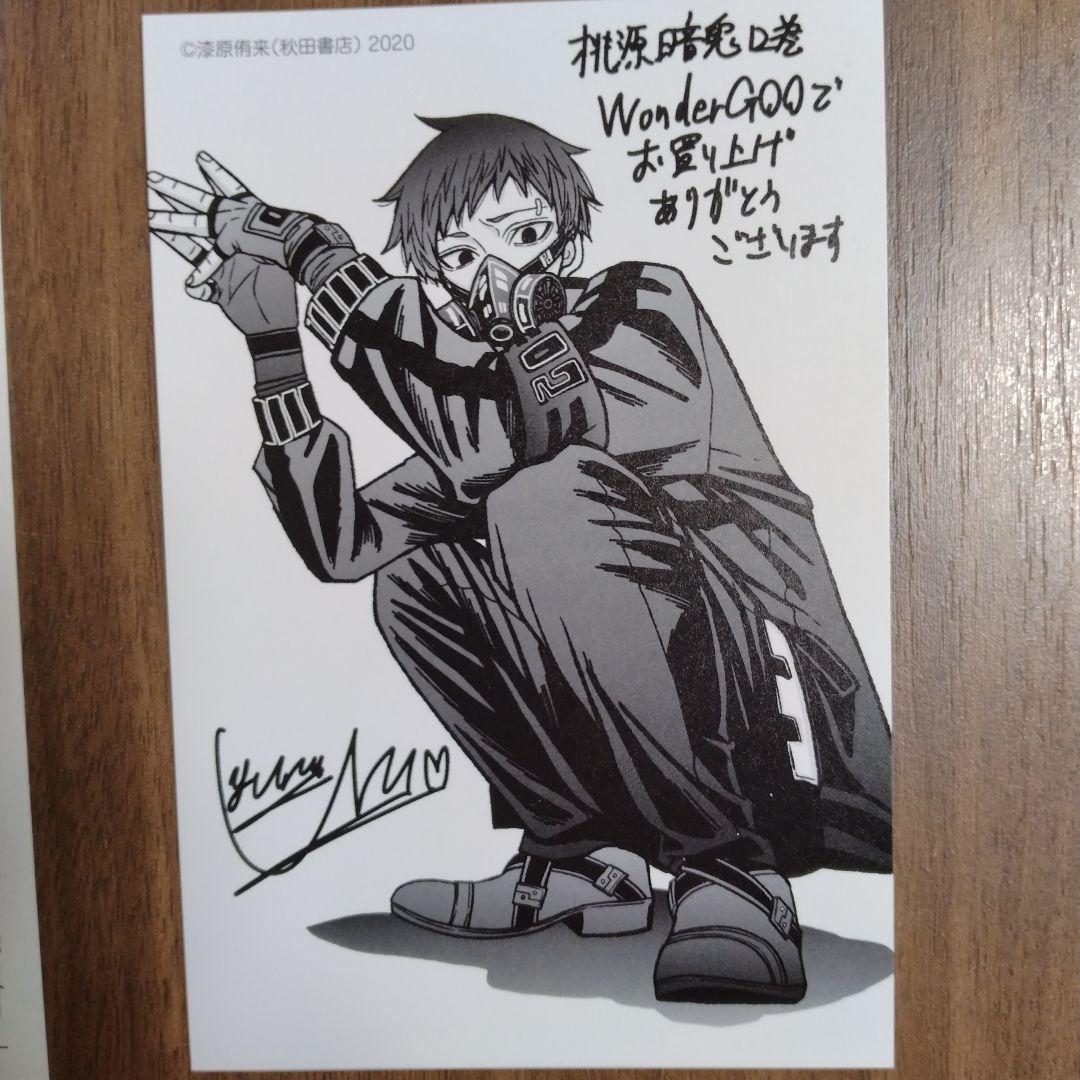 ©漆原侑来(秋田書店) 2020
桃源暗鬼 2巻
WonderGOOで
お買い上げ
ありがとう
ございます
05